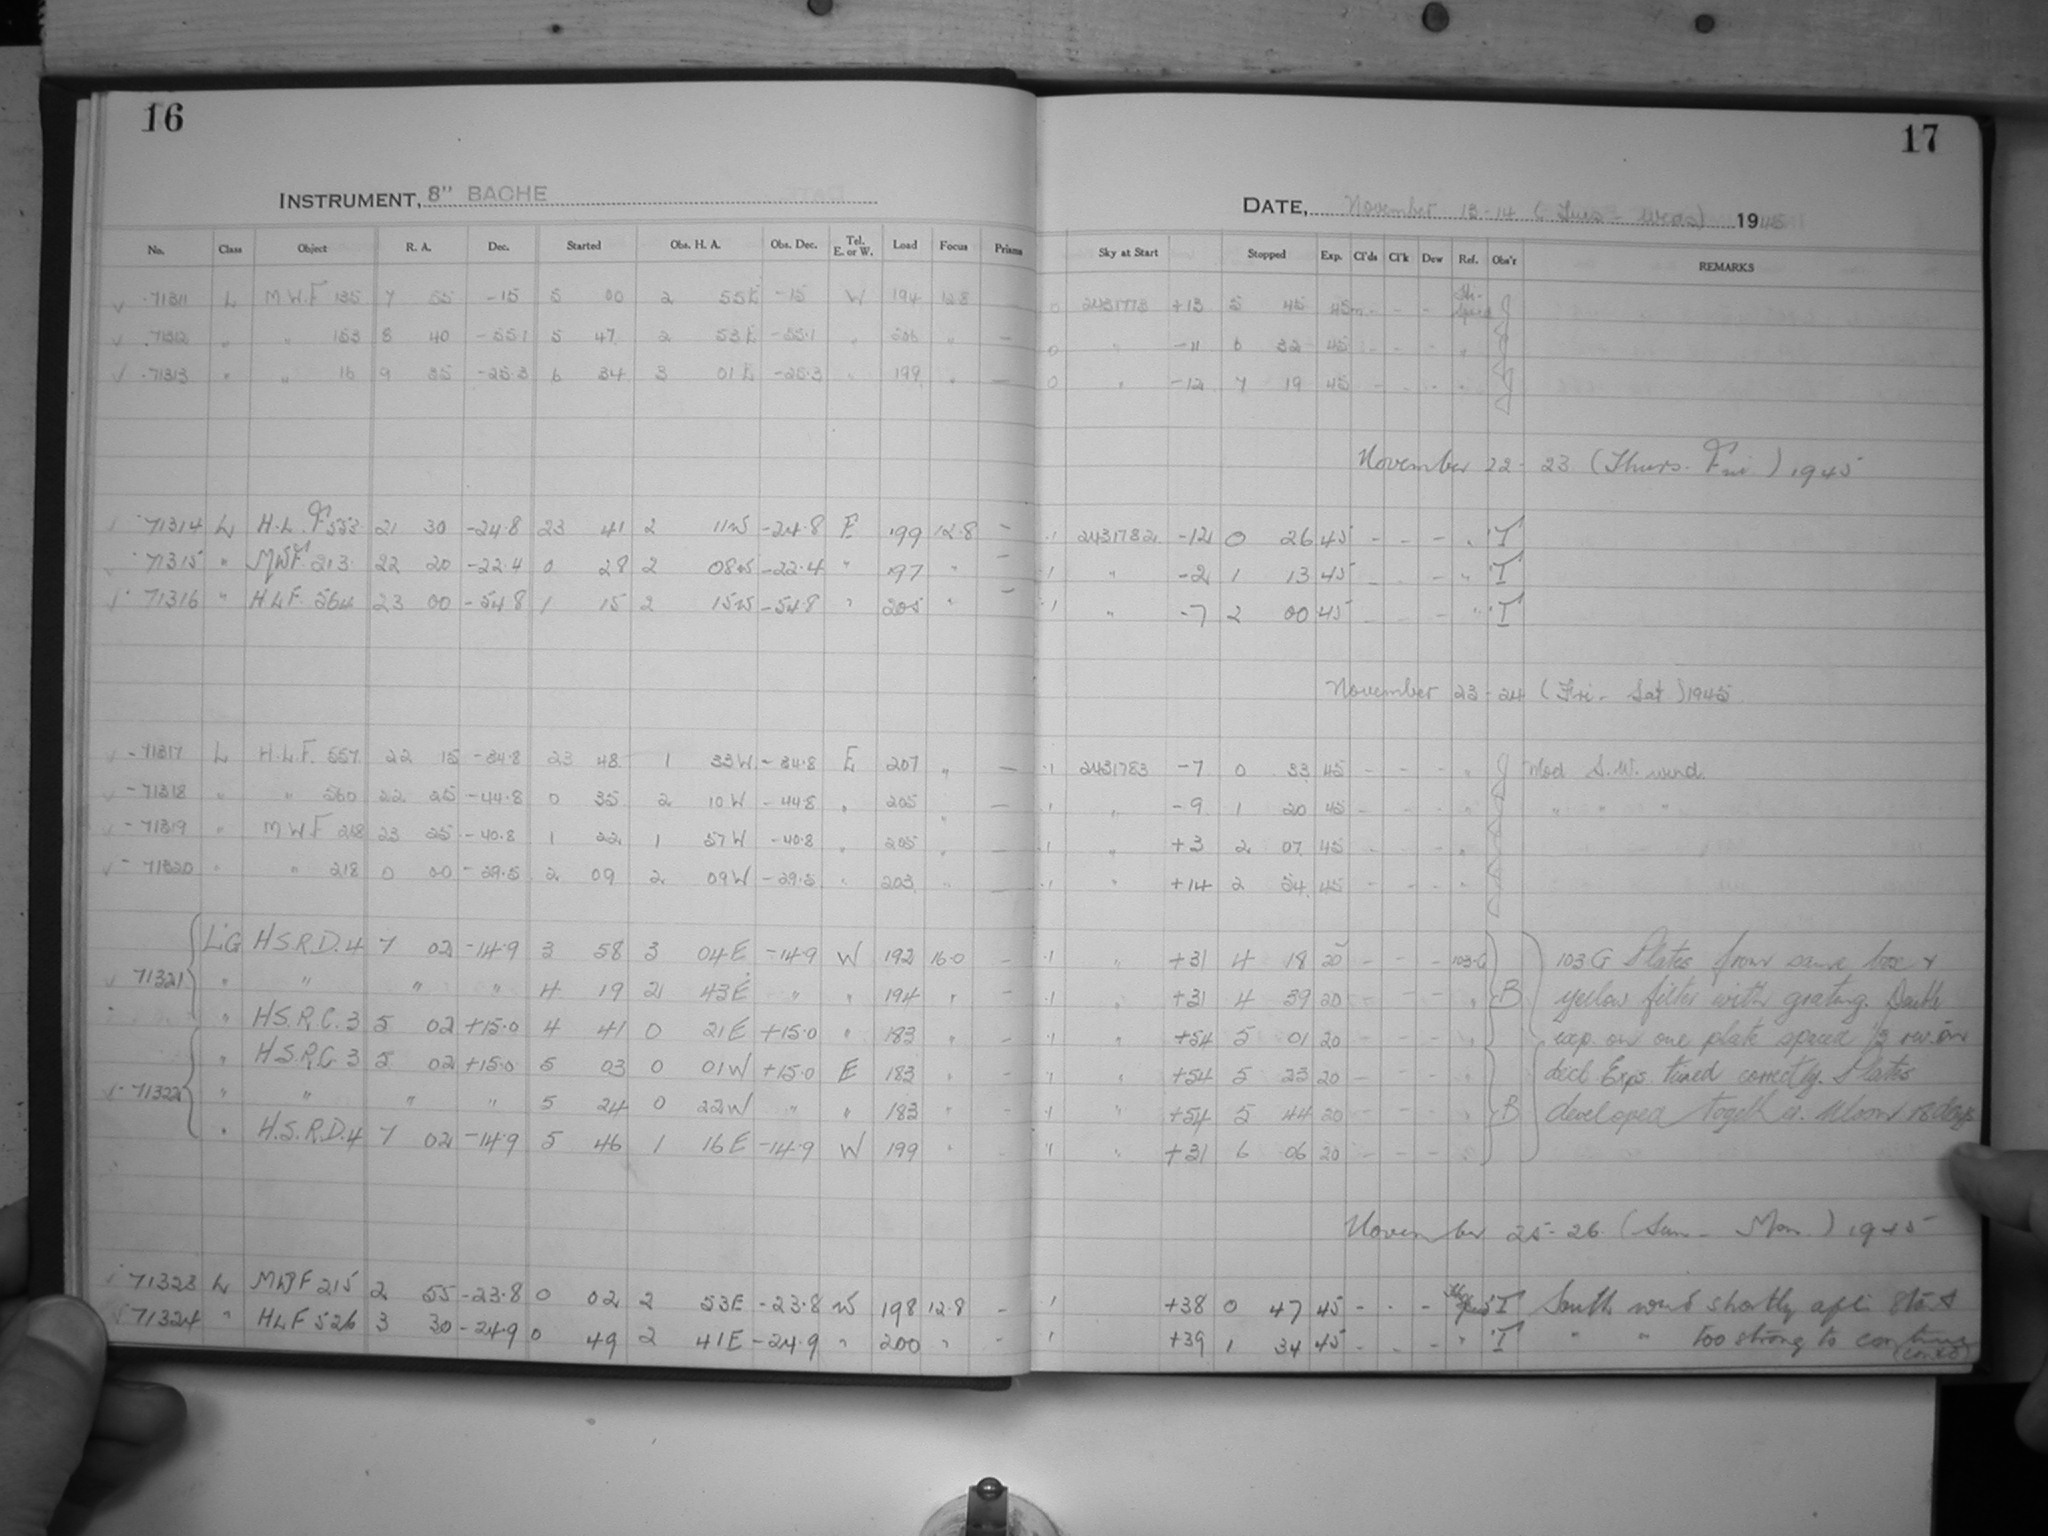 16
17
INSTRUMENT, 8" BACHE
DATE, November 13-14 (Tues - Weds) 1945
No. Class Object R. A. Dec. Started Obs. H. A. Obs. Dec. Tel. E. or W. Load Focus Prisms Sky at Start Stopped Exp. Cl'ds Cl'k Dew Ref. Obs'r REMARKS
71311 L MWF 135 7 55 -15 5 00 2 55E -15 W 194 12.8 0 2431773 +13 5 45 45m - - -
71312 " " 153 8 40 -55.1 5 47 2 53E -55.1 " 206 " - 0 " -11 6 32 45 - - - "
71313 " " 16 9 35 -25.3 6 34 3 01E -25.3 " 199 " - 0 " -12 7 19 45 - - - "
November 22-23 (Thurs. Fri) 1945
71314 L H.L.F 553 21 30 -24.8 23 41 2 11W -24.8 E 199 12.8 - .1 2431782 -12 0 26 45 - - - " T
71315 " MWF 213 22 20 -22.4 0 28 2 08W -22.4 " 197 " - .1 " -2 1 13 45 - - - " T
71316 " HLF. 564 23 00 -54.8 1 15 2 15W -54.8 " 205 " - .1 " -7 2 00 45 - - - " T
November 23-24 (Fri - Sat) 1945
71317 L H.L.F. 557 22 15 -34.8 23 48 1 33W -34.8 E 207 " - .1 2431783 -7 0 33 45 - - - " Mod S.W. wind.
71318 " " 560 22 25 -44.8 0 35 2 10W -44.8 " 205 " - .1 " -9 1 20 45 - - - " " " "
71319 " MWF 23 25 -40.8 1 22 1 57W -40.8 " 205 " - .1 " +3 2 07 45 - - - "
71320 " " 218 0 00 -29.5 2 09 2 09W -29.5 " 203 " - .1 " +14 2 54 45 - - - "
LG H.S.R.D.4 7 02 -14.9 3 58 3 04E -14.9 W 192 16.0 - .1 " +31 4 18 20 - - - 103-G 103G Plates from same box &
71321 " " " " 4 19 2 43E " " 194 " - .1 " +31 4 39 20 - - - " B yellow filter with grating. Double
" H.S.R.C. 3 5 02 +15.0 4 41 0 21E +15.0 " 183 " - .1 " +54 5 01 20 - - - " exp. on one plate spaced 1/2 rev. in
" H.S.R.C. 3 5 02 +15.0 5 03 0 01W +15.0 E 183 " - .1 " +54 5 23 20 - - - " decl. Exps. timed correctly. Plates
71322 " " " " 5 24 0 22W " " 183 " - .1 " +54 5 44 20 - - - " B developed together. Moon 18 days
" H.S.R.D.4 7 02 -14.9 5 46 1 16E -14.9 W 199 " - .1 " +31 6 06 20 - - - "
November 25-26 (Sun - Mon.) 1945
71323 L MWF 215 2 55 -23.8 0 02 2 53E -23.8 W 198 12.8 - .1 +38 0 47 45 - - - T South wind shortly aft. start
71324 " HLF 526 3 30 -24.9 0 49 2 41E -24.9 " 200 " - .1 +39 1 34 45 - - - " T " " too strong to continue
(contd)